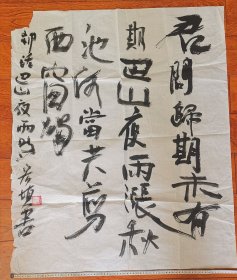 君問歸期未有
期巴山夜雨漲秋
池何當共剪
西窗燭
却話巴山夜雨時書